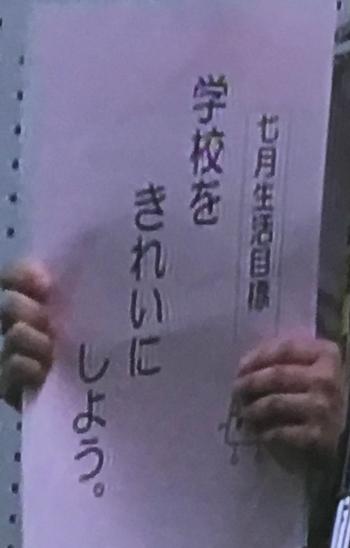 七月生活目標
学校を
きれいに
しよう。